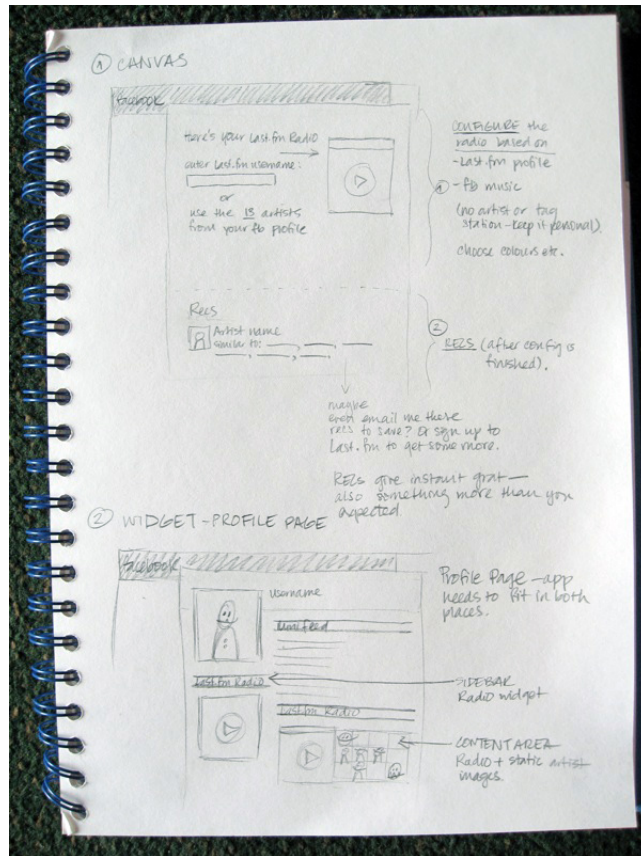 ① CANVAS
facebook
Here's your Last.fm Radio
enter Last.fm username:
or
use the 13 artists
from your fb profile
Recs
Artist name
similar to:
①
CONFIGURE the
radio based on
-Last.fm profile
- fb music
(no artist or tag
station - keep it personal).
choose colours etc.
②
RECS (after config is
finished).
maybe
even email me these
recs to save? Or sign up to
Last.fm to get some more.
RECs give instant grat—
also something more than you
expected.
② WIDGET - PROFILE PAGE
facebook
username
Minifeed
Last.fm Radio
Last.fm Radio
Profile Page - app
needs to fit in both
places.
SIDEBAR
Radio widget
CONTENT AREA
Radio + static artist
images.